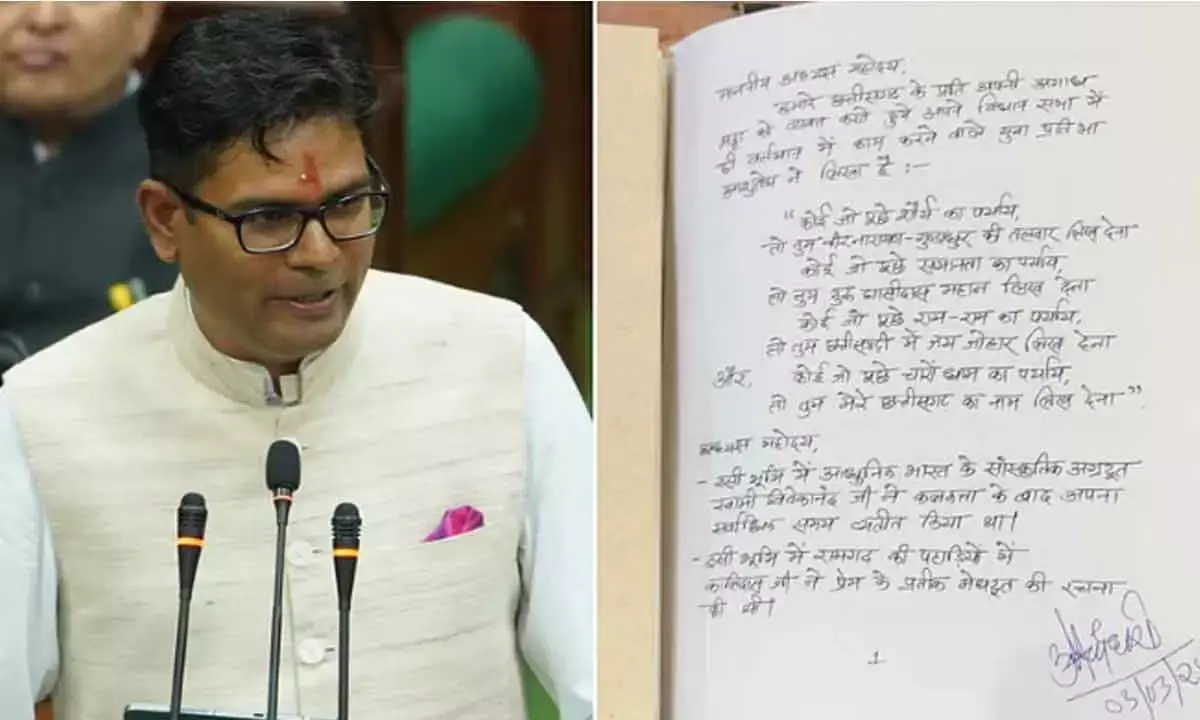 माननीय अध्यक्ष महोदय,
हमारे छत्तीसगढ़ के प्रति अपनी अगाध
श्रद्धा को व्यक्त करते हुये अपने विधान सभा में
ही वर्तमान में काम करने वाले युवा प्रतिभा
आशुतोष ने लिखा है :-
“कोई जो पूछे शौर्य का पर्याय,
तो तुम वीरनारायण-गुण्डाधुर की तलवार लिख देना
कोई जो पूछे समानता का पर्याय,
तो तुम गुरु घासीदास महान लिख देना
कोई जो पूछे राम-राम का पर्याय,
तो तुम छत्तीसगढ़ी में जय जोहार लिख देना
और, कोई जो पूछे चारों धाम का पर्याय,
तो तुम मेरे छत्तीसगढ़ का नाम लिख देना”.
अध्यक्ष महोदय,
- इसी भूमि में आधुनिक भारत के सांस्कृतिक अग्रदूत
स्वामी विवेकानंद जी ने कलकत्ता के बाद अपना
सर्वाधिक समय व्यतीत किया था।
- इसी भूमि में रामगढ़ की पहाड़ियों में
कालिदास जी ने प्रेम के प्रतीक मेघदूत की रचना
की थी।
1
03/03/25